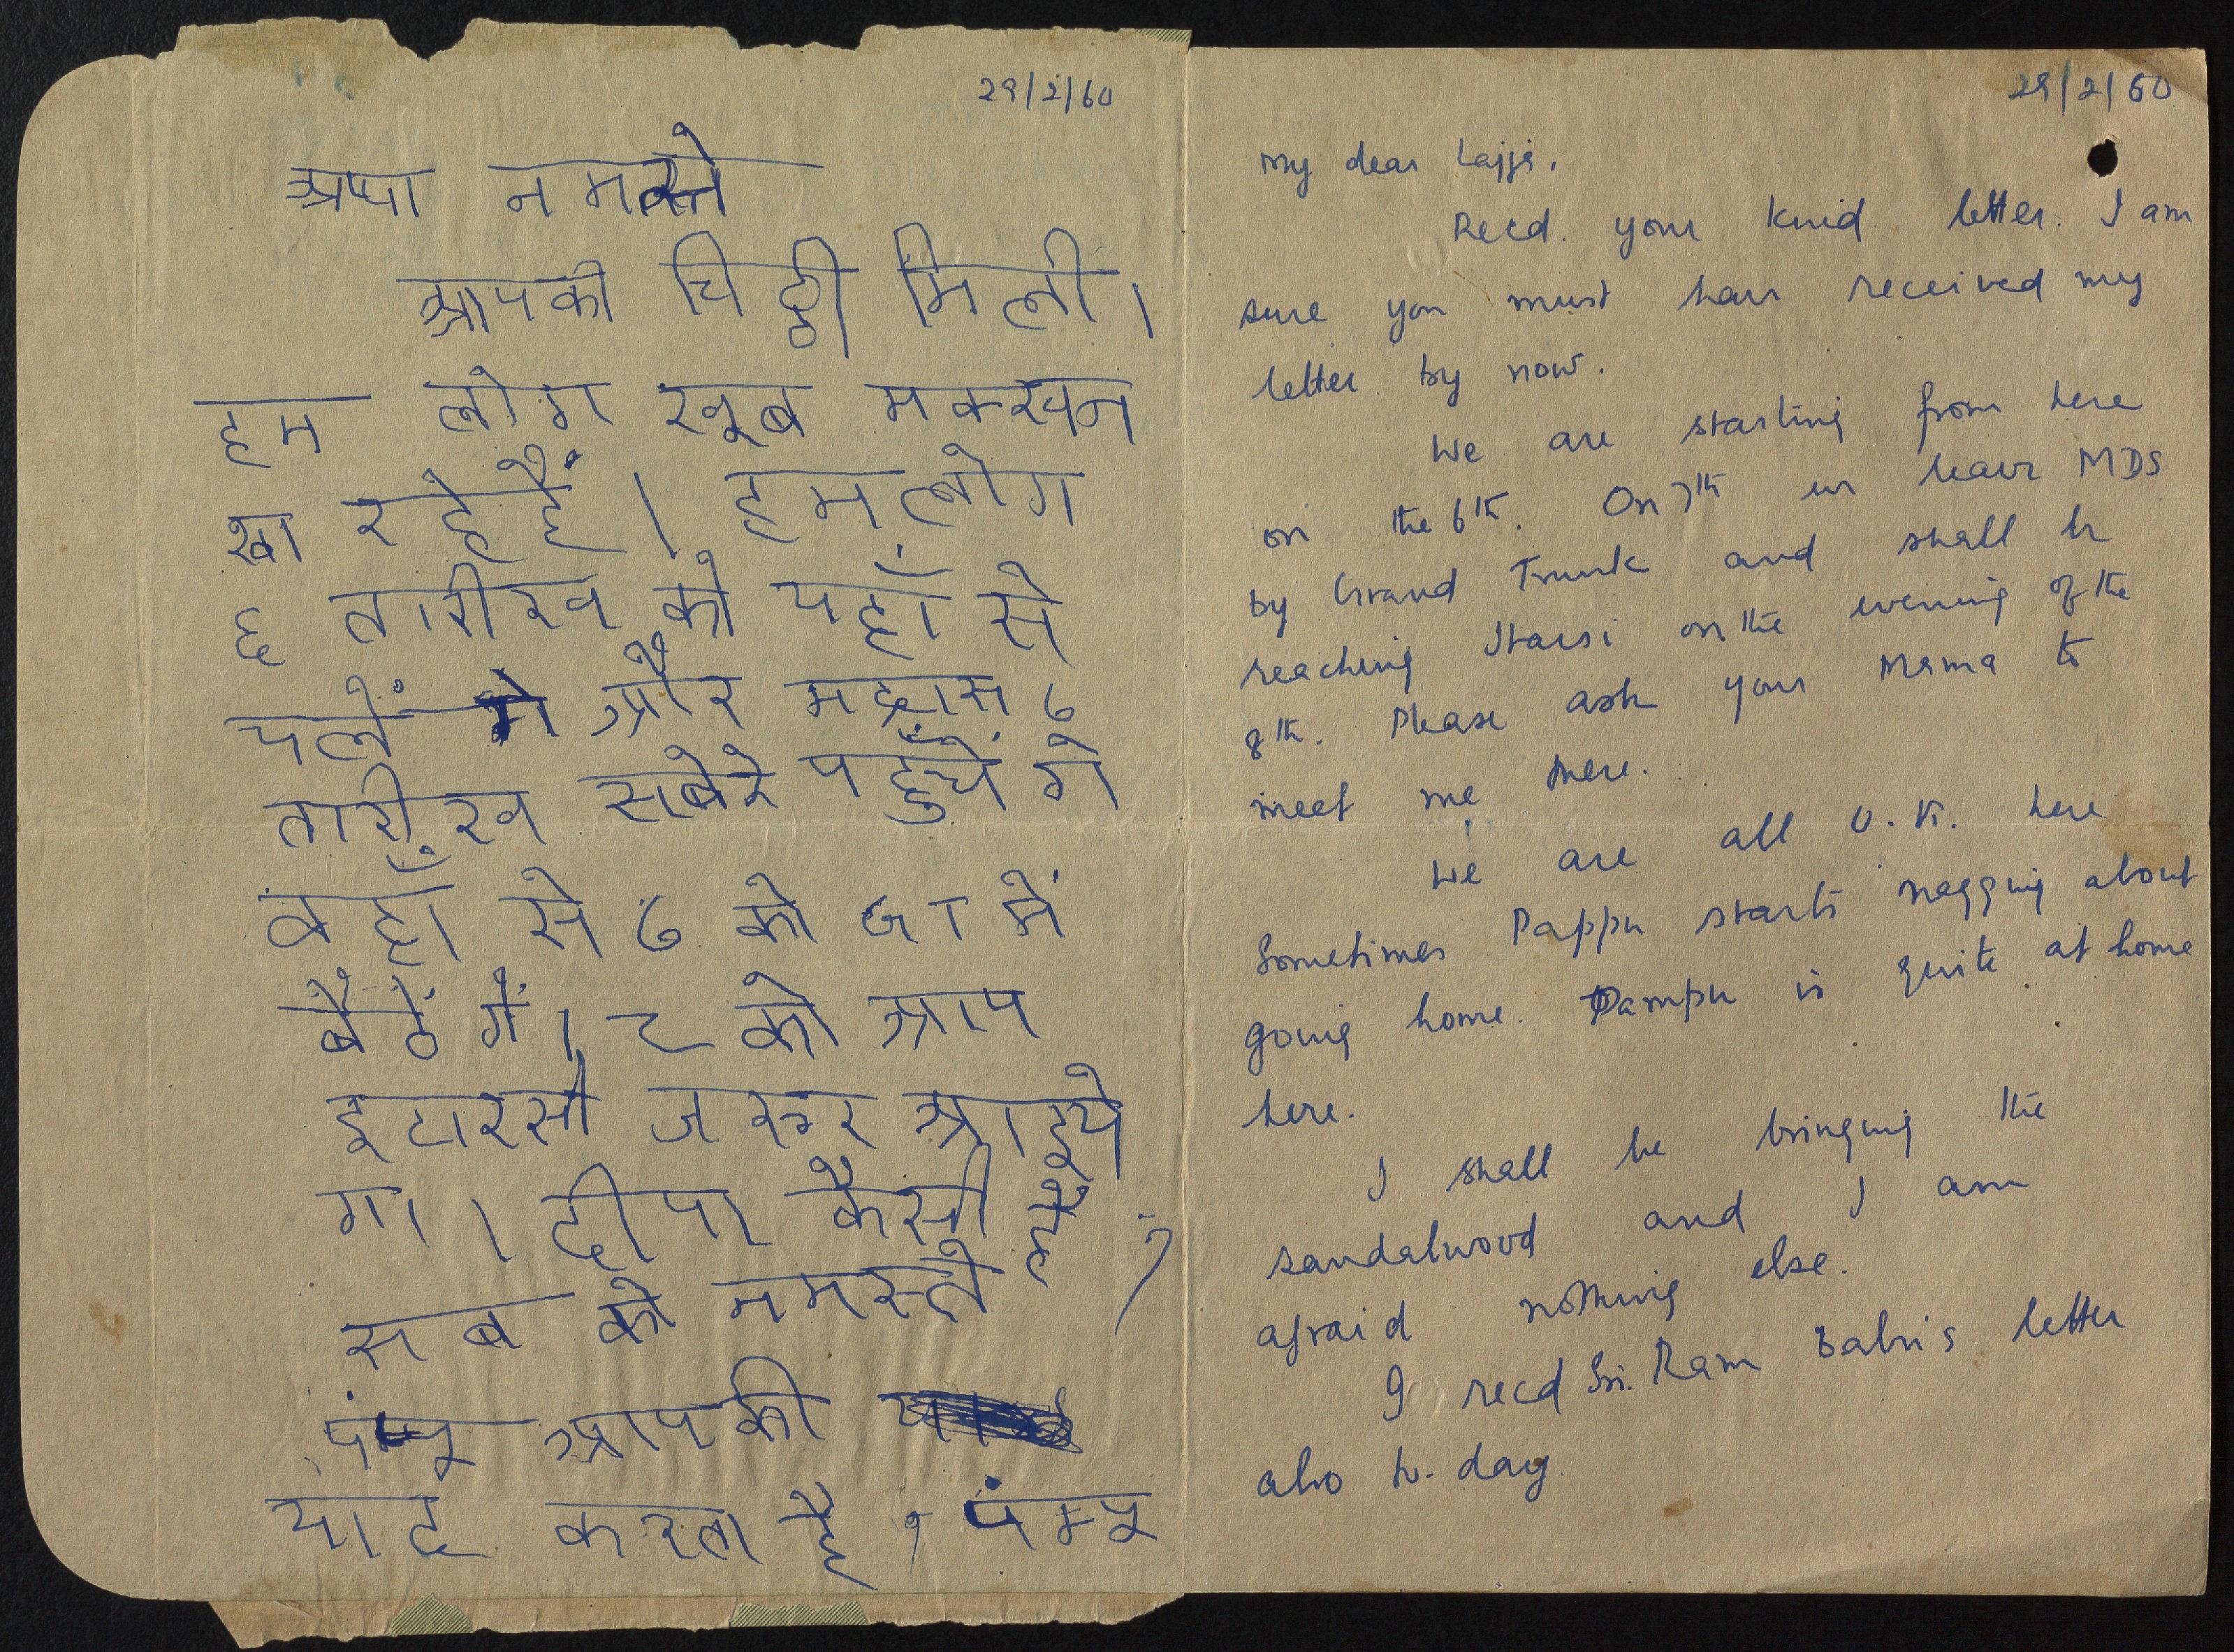 29/2/60
आपा नमस्ते
आपकी चिट्ठी मिली।
हम लोग खूब मक्खन
खा रहे हैं। हम लोग
६ तारीख को यहाँ से
चलें गे और मद्रास ७
तारीख सबेरे पहुँचें गे
वहाँ से ७ को GT में
बैठें गें। ८ को आप
इटारसी जरूर आइये
गा। दीपा कैसी है ?
सब को नमस्ते
पंम्पू आपकी
याद करता है, पंम्पू
29/2/60
My dear Lajja,
Recd. your kind letter. I am
sure you must have received my
letter by now.
We are starting from here
on the 6th. On 7th we leave MDS
by Grand Trunk and shall be
reaching Itarsi on the evening of the
8th. Please ask your Mama to
meet me there.
We are all O.K. here
Sometimes Pappu starts nagging about
going home. Pampu is quite at home
here.
I shall be bringing the
sandalwood and I am
afraid nothing else.
I recd Sri. Ram Babu's letter
also to-day